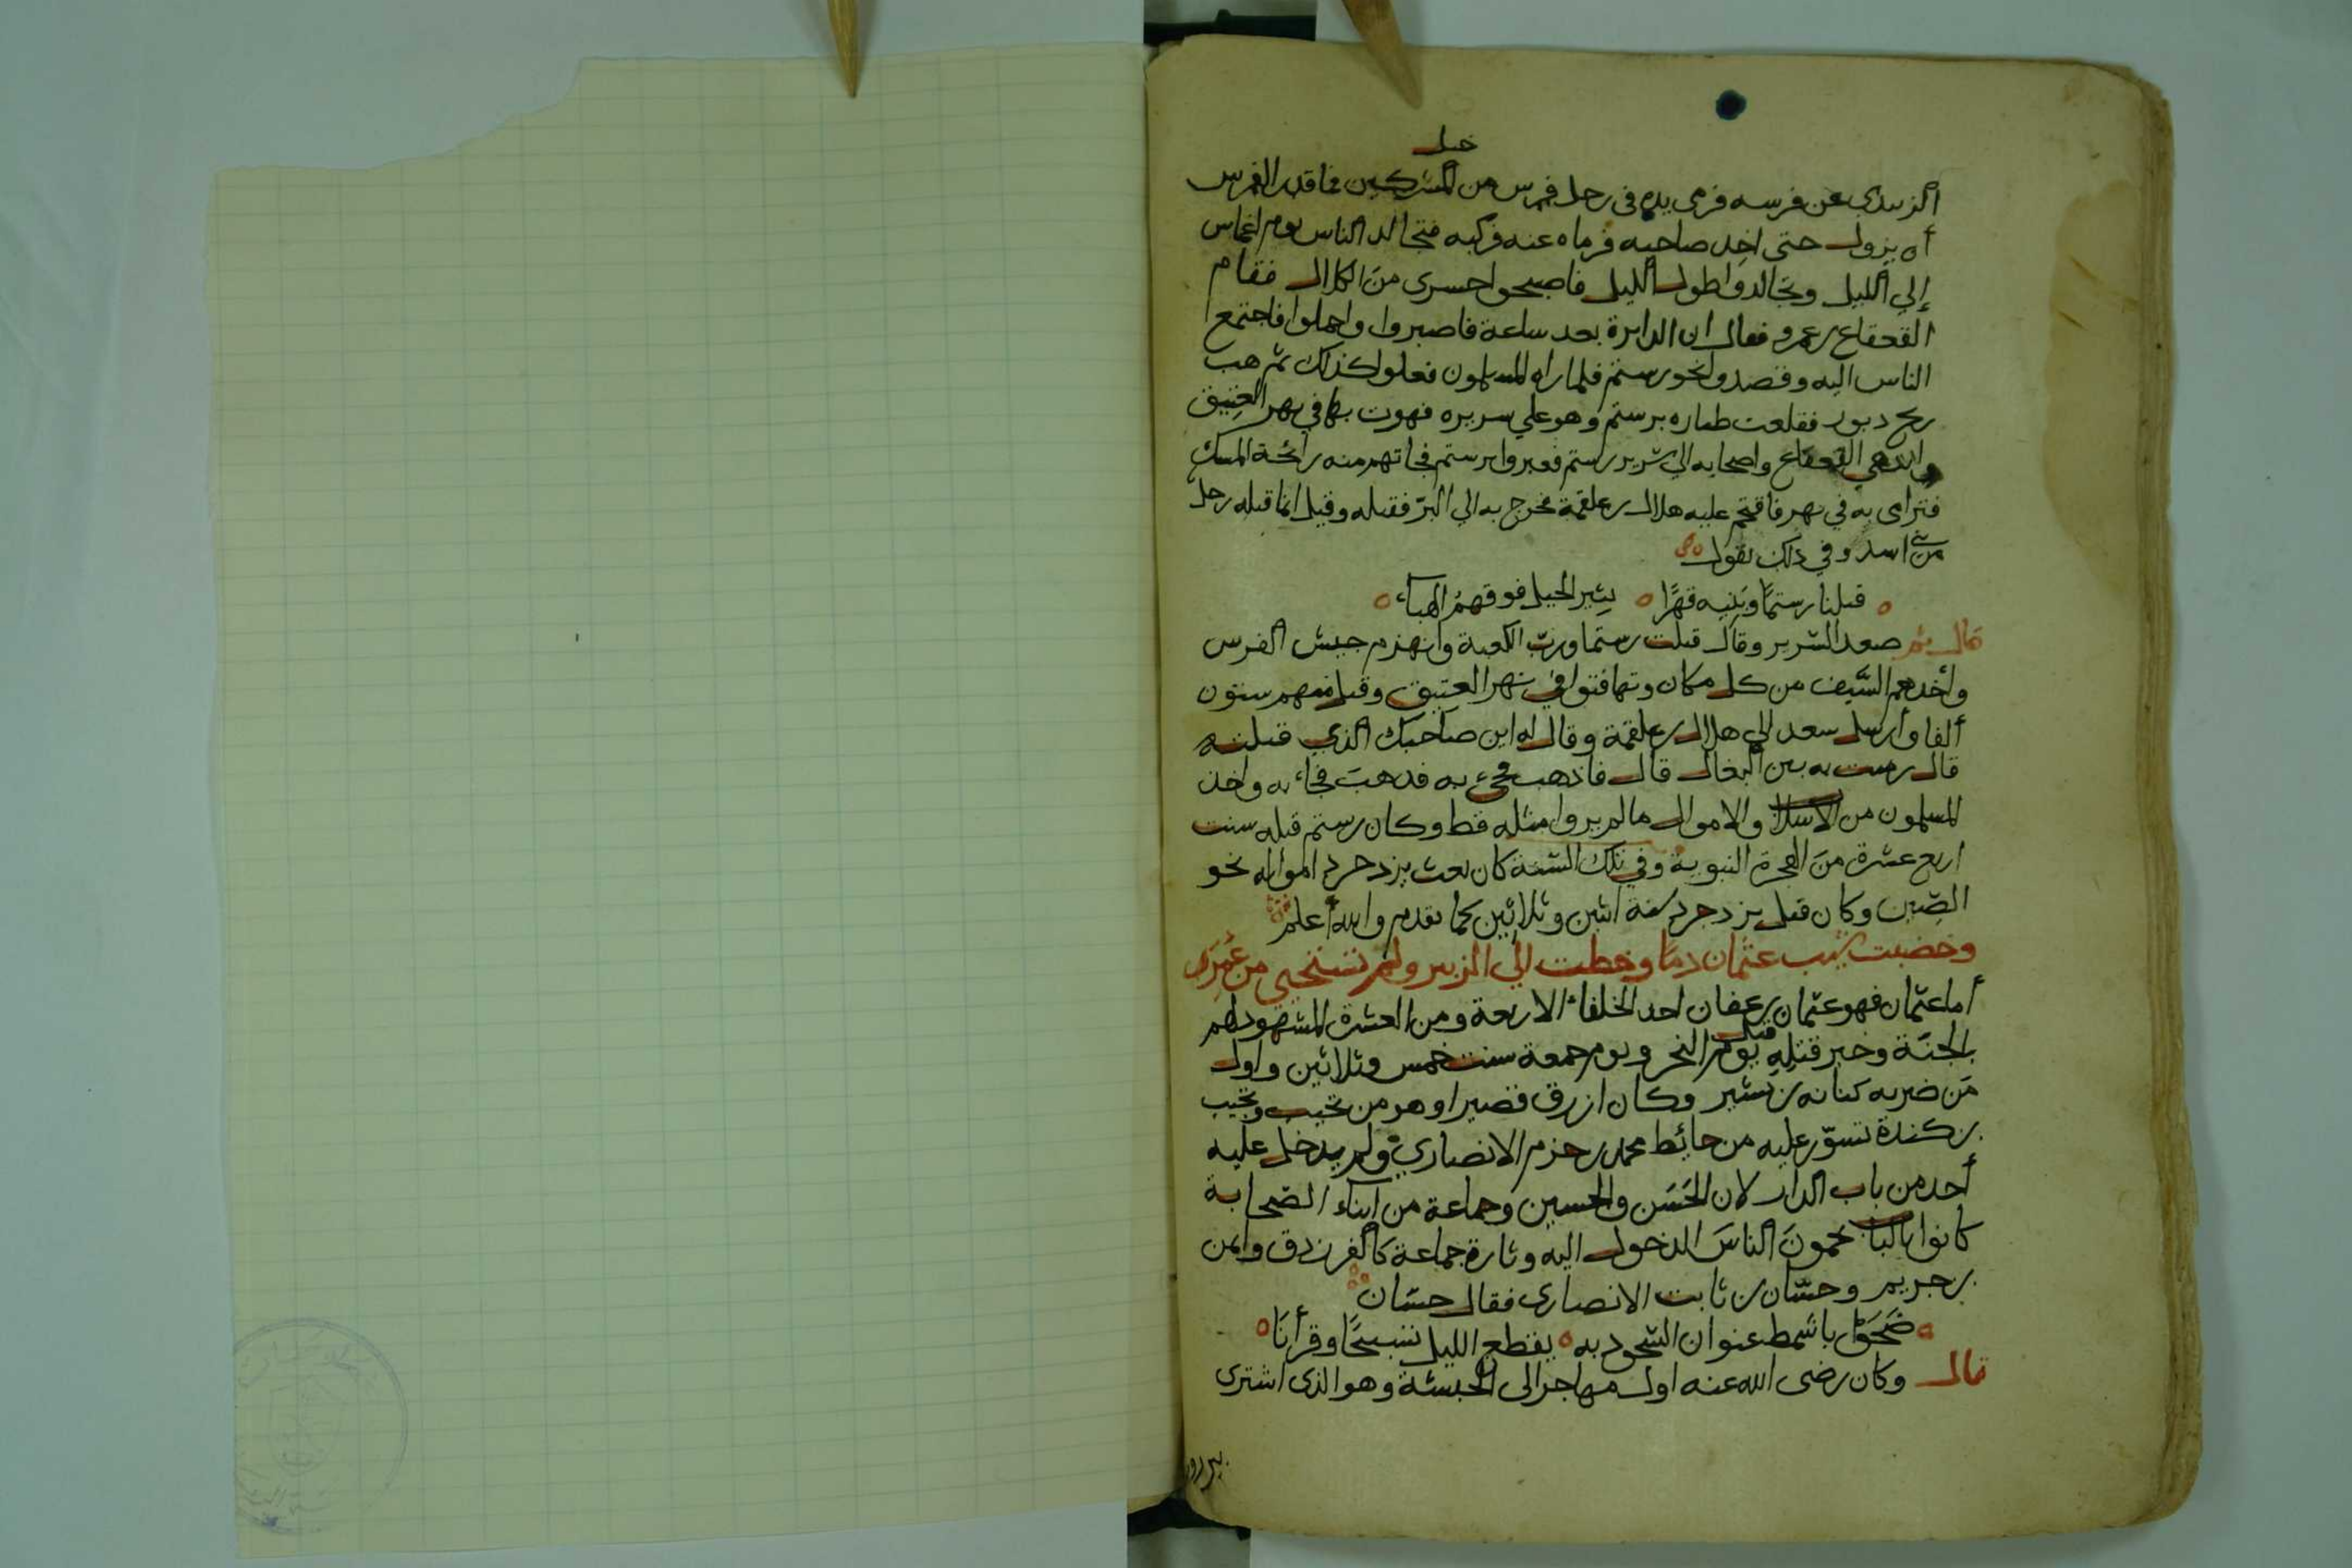 خيل
الزبيدي عن فرسه فرمى يده في رجل فرس من المشركين فما قدر الفرس
أن يزول حتى اخذ صاحبه فرماه عنه فركبه فتجالد الناس يوم اغماس
إلي الليل وتجالدوا طول الليل فاصبحوا حسرى من الكلال فقام
القعقاع بن عمرو فقال ان الدايرة بعد ساعة فاصبروا واحملوا فاجتمع
الناس اليه وقصدوا نحو رستم فلما راه المسلمون فعلوا كذلك ثم هب
ريح دبور فقلعت طياره برستم وهو علي سريره فهوت بها في نهر العتيق
وانتهي القعقاع واصحابه الي سرير رستم فعبروا برستم فجاتهم منه رائحة المسك
فترامى به في نهر فاقتحم عليه هلال بن علقمة فخرج به الي البرّ فقتله وقيل انما قتله رجل
من بني اسد وفي ذلك يقول
قتلنا رستمًا وبنيه قهرًا يثير الخيل فوقهمُ الهباء
قال ثم صعد السرير وقال قتلت رستما وربّ الكعبة وانهزم جيش الفرس
وأخذهم السَّيف من كل مكان وتهافتوا في نهر العتيق وقتل منهم ستون
ألفا وأرسل سعد الي هلال بن علقمة وقال له اين صاحبك الذي قتلته
قال رميت به بين البغال قال فاذهب فجئ به فذهب فجاء به واخذ
المسلمون من الاسلاب والاموال ما لم يروا مثله قط وكان رستم قتله سنت
اربع عشرة من الهجرة النبوية وفي تلك السّنة كان بعث يزدجرد امواله نحو
الصّين وكان قتل يزدجرد سنة اثنين وثلاثين كما تقدم والله أعلم
وخضبت شيب عثمان دمًا وخطت الي الزبير ولم تستحيي من عُمَرِ
أما عثمان فهو عثمان بن عفان احد الخلفاء الاربعة ومن العشرة المشهود لهم
بالجنّة وخبر قتلِهِ قتل يوم النحر ويوم جمعة سنت خمس وثلاثين واول
مَن ضربه كنانه بن بشير وكان ازرق قصيرا وهو من تجيب وتجيب
من كندة تسوّر عليه من حائط محمد بن حزم الانصاري ولم يدخل عليه
أحد من باب الدار لان الحَسَن والحسين وجماعة من ابناء الصّحابة
كانوا بالباب يحمون الناسَ الدخول اليه وثارة جماعة كالفرزدق وايمن
بن جريم وحسّان بن ثابت الانصارى فقال حسّان
ضَحَوّا باشمط عنوان السّجود به يقطع الليل تسبيحًا وقرأنًا
قال وكان رضى الله عنه اول مهاجر الى الحبشة وهو الذى اشترى